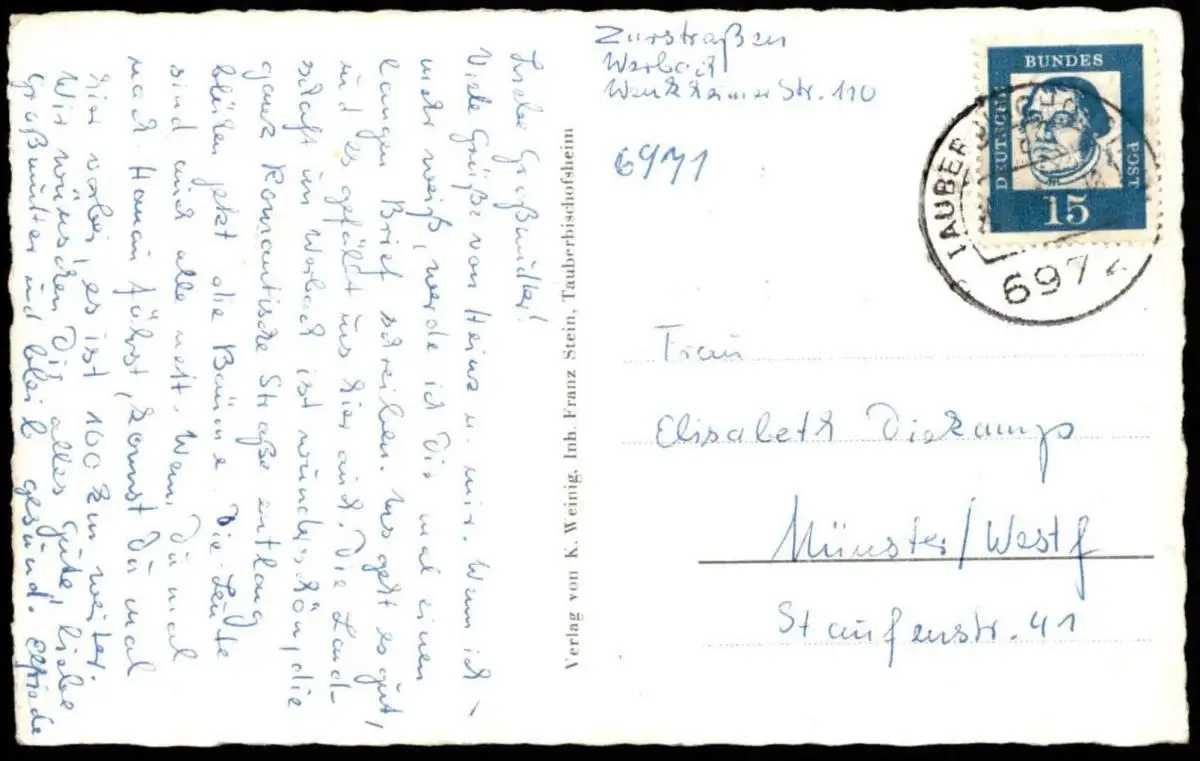 Liebe Großmutter!
Viele Grüße von Heinz u. mir. Wenn ich
mehr weiß, werde ich Dir mal einen
langen Brief schreiben. Uns geht es gut,
und es gefällt uns hier auch. Die Land-
schaft in Werbach ist wunderschön, die
ganze Romantische Straße entlang
blühen jetzt die Bäume. Die Leute
sind und alle nett. Wenn Du mal
nach Hamm fährst, kannst Du mal
hier vorbei, es ist 160 km weiter.
Wir wünschen Dir alles Gute, liebe
Großmutter und bleib gesund.
Verlag von K. Weinig, Inh. Franz Stein, Tauberbischofsheim
Zurstraßen
Werbach
Wenkheimer Str. 110
6971
DEUTSCHE
BUNDES
POST
15
TAUBERBISCHOFSH
697
Frau
Elisabeth Diekamp
Münster/Westf
Staufenstr. 41